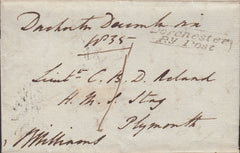 Dorchester Decemb six
1835
Dorchester
Py Post
Lieut. C. B. D. Acland
H. M. S. Stag
Plymouth
Williams